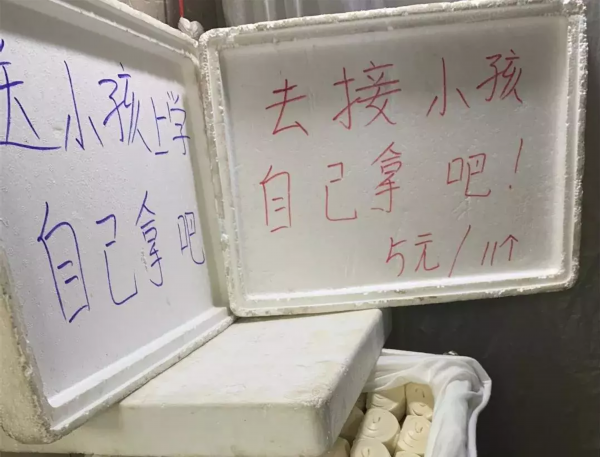 送小孩上学
自己拿吧
去接小孩
自己拿吧!
5元/11个